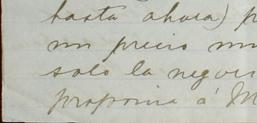 hasta ahora) p
un precio mu
solo la negoci
proponia á M